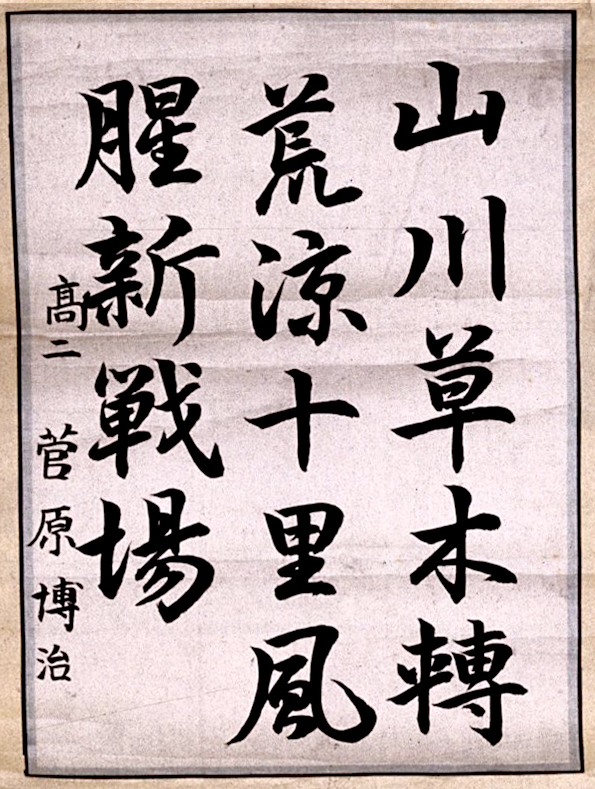 山川草木轉
荒涼十里風
腥新戦場
高二 菅原博治